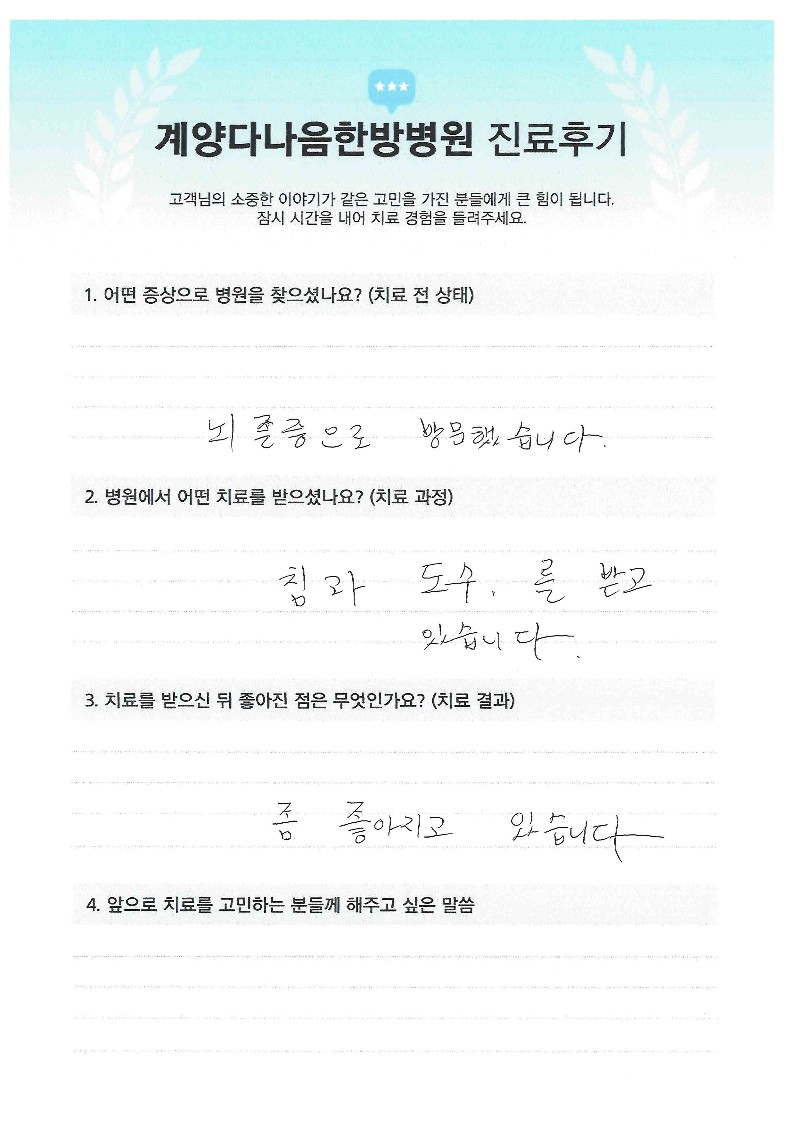 계양다나음한방병원 진료후기
고객님의 소중한 이야기가 같은 고민을 가진 분들에게 큰 힘이 됩니다.
잠시 시간을 내어 치료 경험을 들려주세요.
1. 어떤 증상으로 병원을 찾으셨나요? (치료 전 상태)
뇌졸증으로 방문했습니다.
2. 병원에서 어떤 치료를 받으셨나요? (치료 과정)
침과 도수. 를 받고
있습니다.
3. 치료를 받으신 뒤 좋아진 점은 무엇인가요? (치료 결과)
좀 좋아지고 있습니다
4. 앞으로 치료를 고민하는 분들께 해주고 싶은 말씀